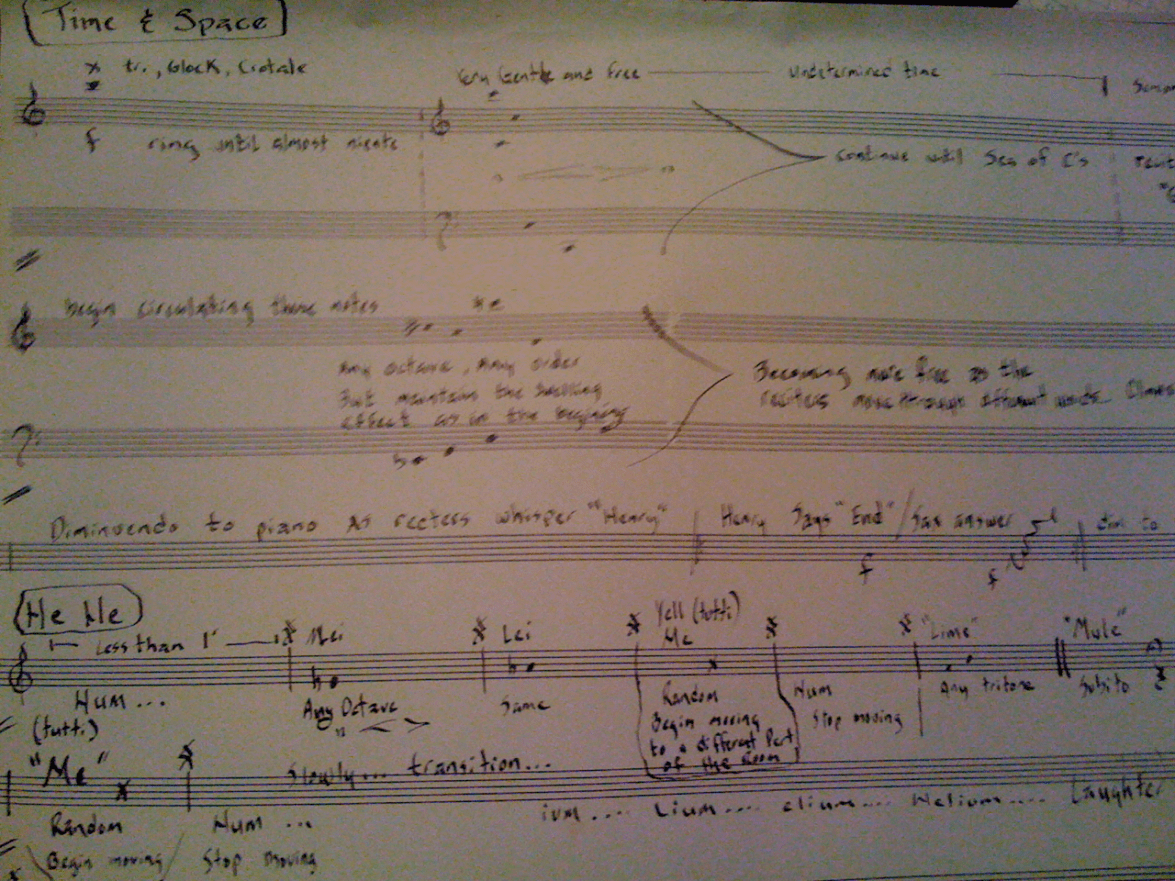 Time & Space
tr., Glock, Crotale
Very Gentle and Free Undetermined time
f ring until almost niente
Continue until Sea of C's
begin circulating these notes
Any octave, Any order
But maintain the swelling
effect as in the begining
Becoming more free as the
reciters move through different words
Diminuendo to piano As recters whisper "Henry" Henry Says "End" / Sax answer dim to
f f
He He
Less than 1' Mei Lei Yell (tutti) "Lime" "Mule"
Me
Hum ... Any Octave Same Random Hum Any tritone Subito
(tutti) Begin moving Stop moving
to a different Part
of the Room
"Me" Slowly ... transition ...
Random Hum ... ium .... Lium .... elium .... Helium .... Laughter
Begin moving Stop moving